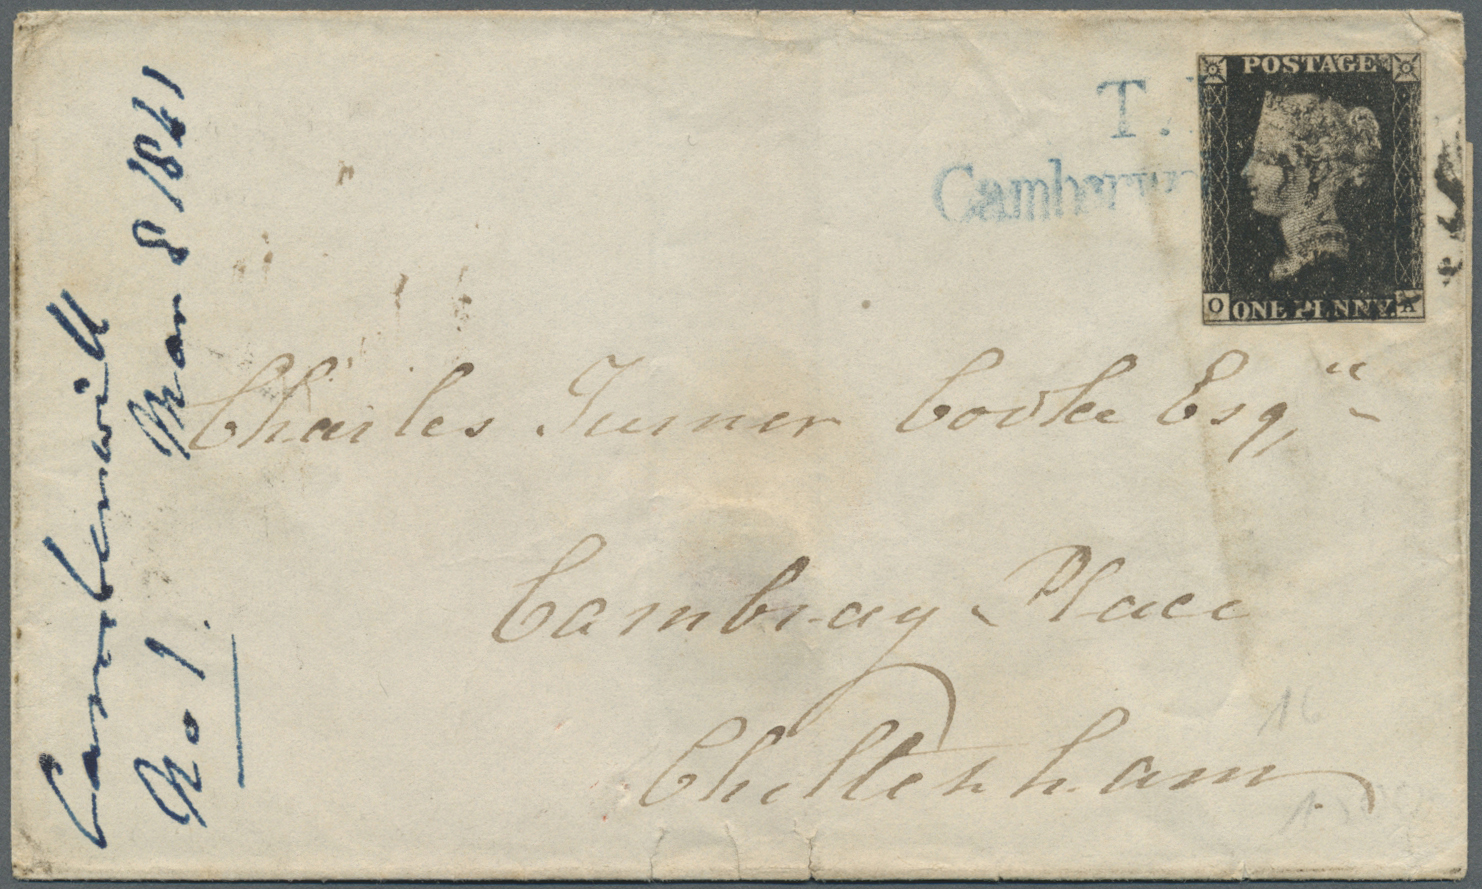 Camberwill
Mar 8 1841
No 1.
T.
Camberw
POSTAGE
O ONE PENNY.
Charles Turner Cooke Esqre
Cambray Place
Cheltenham
16